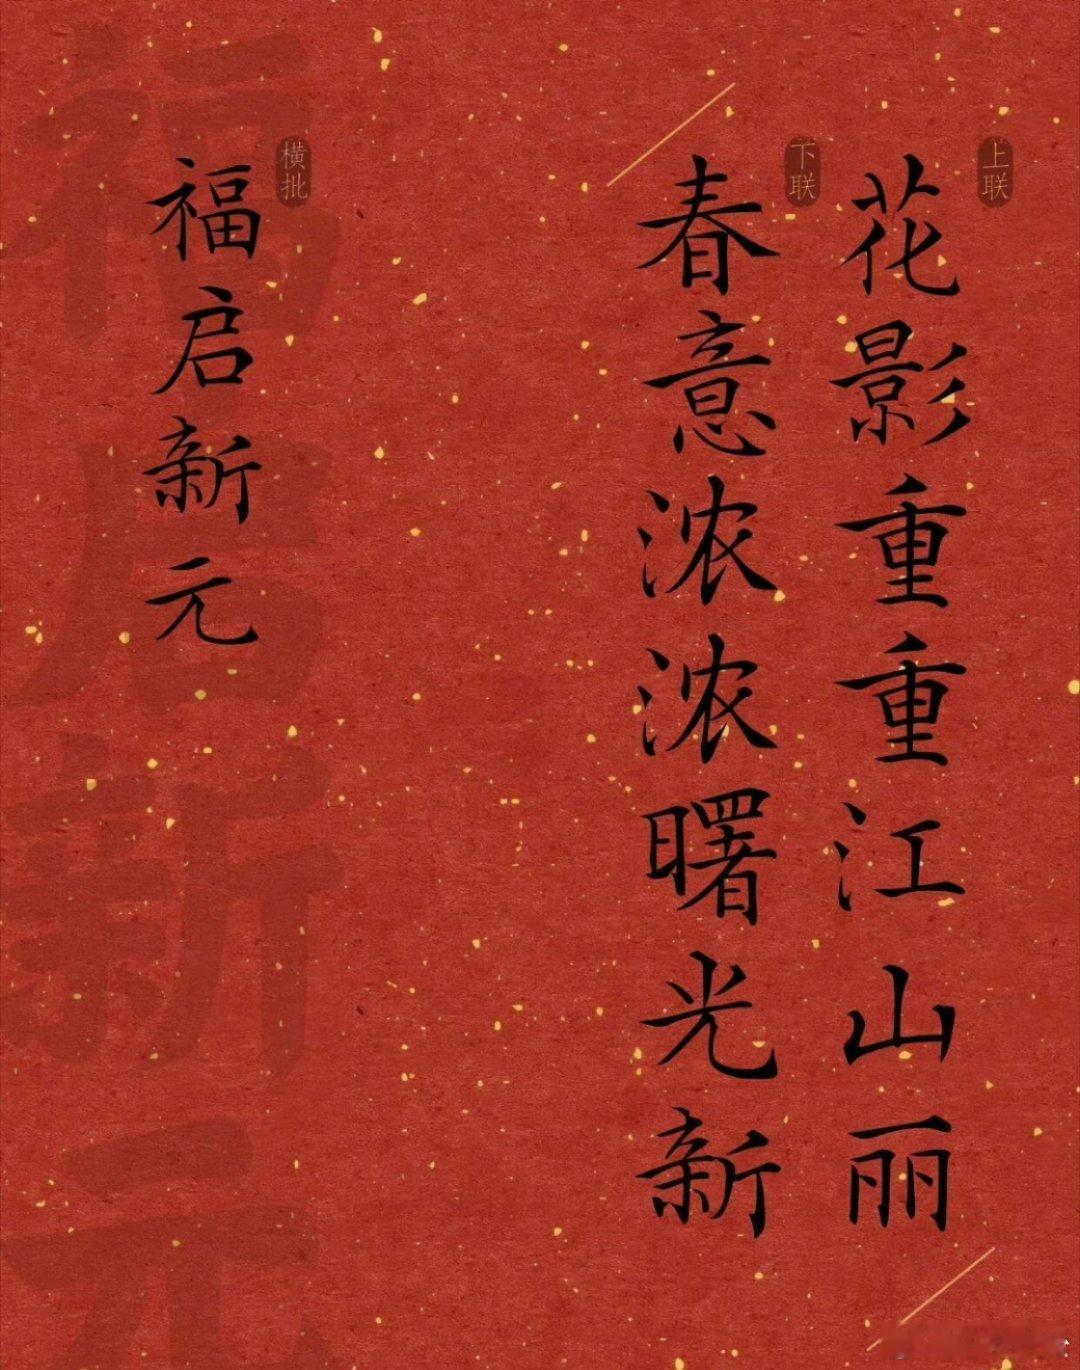 上联
花影重重江山丽
下联
春意浓浓曙光新
横批
福启新元
福启新元